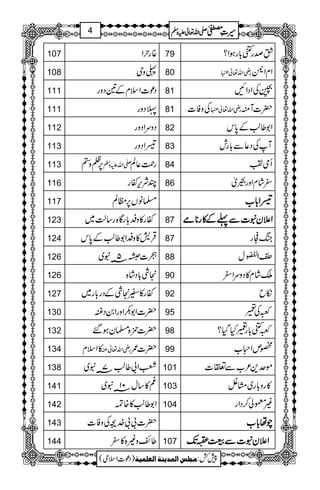 سیرتِ مصطفیٰ صلی اللہ تعالیٰ علیہ وسلم 4
شق صدر کتنی بار ہوا؟ 79
ام ایمن رضی اللہ تعالیٰ عنہا 80
بچپن کی ادائیں 81
حضرت آمنہ رضی اللہ تعالیٰ عنہا کی وفات 81
ابوطالب کے پاس 82
آپ کی دعا سے بارش 83
اُمّی لقب 84
سفر شام اور بُحیریٰ 86
تیسرا باب
اعلان نبوت سے پہلے کے کارنامے 87
جنگ فجار 87
حلف الفضول 88
ملک شام کا دوسرا سفر 90
نکاح 92
کعبہ کی تعمیر 95
کعبہ کتنی بار تعمیر کیا گیا؟ 98
مخصوص احباب 99
موحدین عرب سے تعلقات 101
کاروباری مشاغل 103
غیر معمولی کردار 104
چوتھا باب
اعلان نبوت سے بیعت عقبہ تک 107
غار حرا 107
پہلی وحی 108
دعوت اسلام کے تین دور 111
پہلا دور 111
دوسرا دور 112
تیسرا دور 113
رحمت عالم صلی اللہ علیہ وسلم پر ظلم و ستم 113
چند شریر کفار 116
مسلمانوں پر مظالم 117
کفار کا وفد بارگاہ رسالت میں 123
قریش کا وفد ابوطالب کے پاس 124
ہجرت حبشہ ۵ نبوی 126
نجاشی بادشاہ 126
کفار کا سفیر نجاشی کے دربار میں 127
حضرت ابوبکر اور ابن دغنہ 130
حضرت حمزہ مسلمان ہو گئے 132
حضرت عمر رضی اللہ تعالیٰ عنہ کا اسلام 134
شعب ابی طالب ۷ نبوی 138
غم کا سال ۱۰ نبوی 141
ابوطالب کا خاتمہ 142
حضرت بی بی خدیجہ کی وفات 143
طائف وغیرہ کا سفر 144
پیش کش: مجلس المدینة العلمیة (دعوت اسلامی)